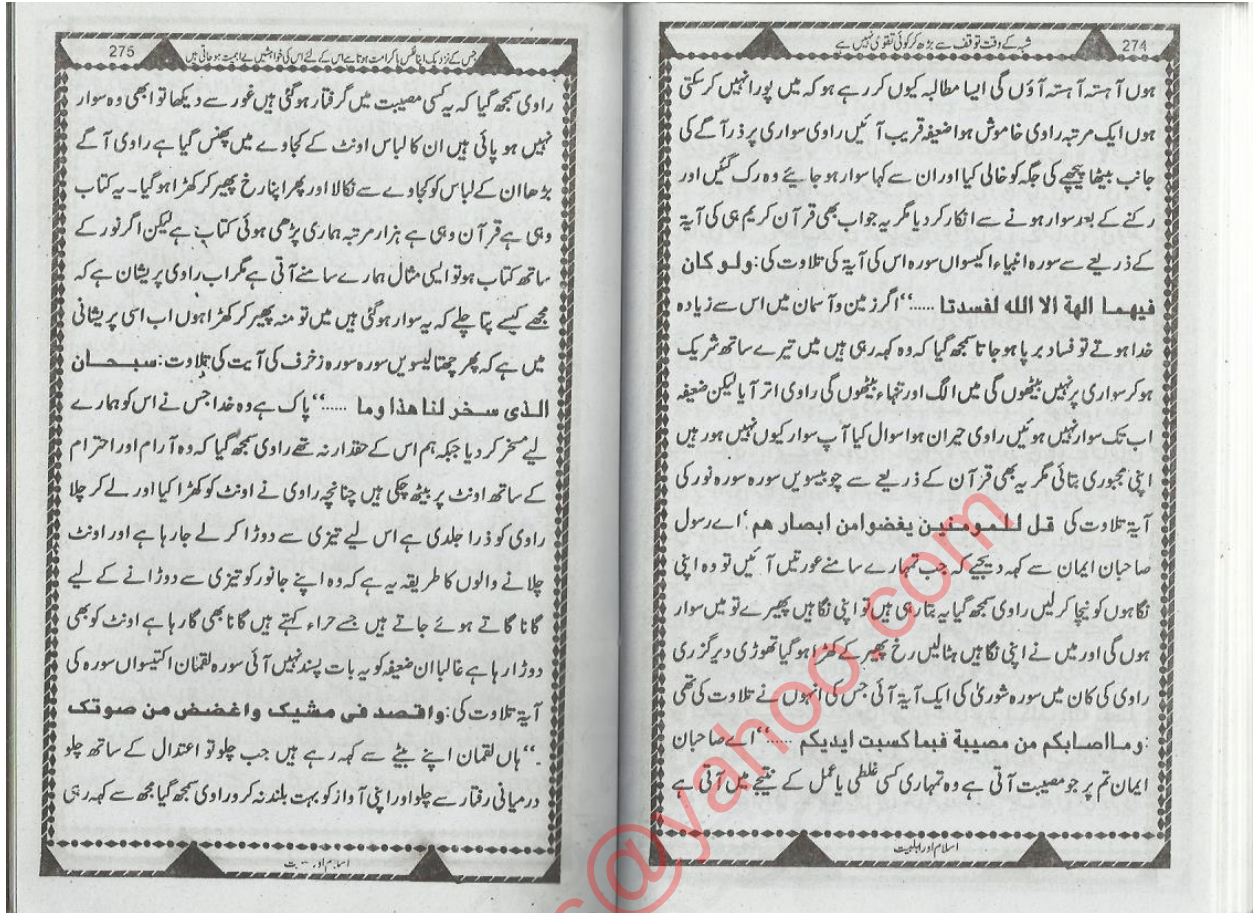 274
شبہ کے وقت توقف سے بڑھ کر کوئی تقویٰ نہیں ہے
ہوں آہستہ آہستہ آؤں گی ایسا مطالبہ کیوں کر رہے ہو کہ میں پورا نہیں کر سکتی
ہوں ایک مرتبہ راوی خاموش ہوا ضعیفہ قریب آئیں راوی سواری پر ذرا آگے کی
جانب بیٹھا پیچھے کی جگہ کو خالی کیا اور ان سے کہا سوار ہو جایئے وہ رک گئیں اور
رکنے کے بعد سوار ہونے سے انکار کر دیا مگر یہ جواب بھی قرآن کریم ہی کی آیۃ
کے ذریعے سے سورہ انبیاء اکیسواں سورہ اس کی آیۃ کی تلاوت کی: ولو کان
فیھما الھة الا اللہ لفسدتا .....‘‘ اگر زمین و آسمان میں اس سے زیادہ
خدا ہوتے تو فساد برپا ہو جاتا سمجھ گیا کہ وہ کہہ رہی ہیں میں تیرے ساتھ شریک
ہو کر سواری پر نہیں بیٹھوں گی میں الگ اور تنہاء بیٹھوں گی راوی اتر آیا لیکن ضعیفہ
اب تک سوار نہیں ہوئیں راوی حیران ہوا سوال کیا آپ سوار کیوں نہیں ہو رہیں
اپنی مجبوری بتائی مگر یہ بھی قرآن کے ذریعے سے چوبیسویں سورہ سورہ نور کی
آیۃ تلاوت کی قل للمومنین یغضوا من ابصار ھم‘ اے رسول
صاحبان ایمان سے کہہ دیجیے کہ جب تمہارے سامنے عورتیں آئیں تو وہ اپنی
نگاہوں کو نیچا کرلیں راوی سمجھ گیا یہ بتا رہی ہیں تو اپنی نگاہیں پھیرے تو میں سوار
ہوں گی اور میں نے اپنی نگاہیں ہٹالیں رخ پھیر کے کھڑا ہو گیا تھوڑی دیر گزری
راوی کی کان میں سورہ شوریٰ کی ایک آیۃ آئی جس کی انہوں نے تلاوت کی تھی
:وما اصابکم من مصیبة فبما کسبت ایدیکم .....‘‘ اے صاحبان
ایمان تم پر جو مصیبت آتی ہے وہ تمہاری کسی غلطی یا عمل کے نتیجے میں آتی ہے
اسلام اور اہلبیت
275
جس کے نزدیک اپنا نفس باکرامت ہوتا ہے اس کے لئے اس کی خواہشیں بے اہمیت ہو جاتی ہیں
راوی سمجھ گیا کہ یہ کسی مصیبت میں گرفتار ہو گئی ہیں غور سے دیکھا تو ابھی وہ سوار
نہیں ہو پائی ہیں ان کا لباس اونٹ کے کجاوے میں پھنس گیا ہے راوی آگے
بڑھا ان کے لباس کو کجاوے سے نکالا اور پھر اپنا رخ پھیر کر کھڑا ہو گیا۔ یہ کتاب
وہی ہے قرآن وہی ہے ہزار مرتبہ ہماری پڑھی ہوئی کتاب ہے لیکن اگر نور کے
ساتھ کتاب ہو تو ایسی مثال ہمارے سامنے آتی ہے مگر اب راوی پریشان ہے کہ
مجھے کیسے پتا چلے کہ یہ سوار ہو گئی ہیں میں تو منہ پھیر کر کھڑا ہوں اب اسی پریشانی
میں ہے کہ پھر چھتالیسویں سورہ سورہ زخرف کی آیت کی تلاوت: سبحان
الذی سخر لنا ھذا وما .....‘‘ پاک ہے وہ خدا جس نے اس کو ہمارے
لیے مسخر کر دیا جبکہ ہم اس کے حقدار نہ تھے راوی سمجھ گیا کہ وہ آرام اور احترام
کے ساتھ اونٹ پر بیٹھ چکی ہیں چنانچہ راوی نے اونٹ کو کھڑا کیا اور لے کر چلا
راوی کو ذرا جلدی ہے اس لیے تیزی سے دوڑا کر لے جا رہا ہے اور اونٹ
چلانے والوں کا طریقہ یہ ہے کہ وہ اپنے جانور کو تیزی سے دوڑانے کے لیے
گانا گاتے ہوئے جاتے ہیں جسے حراء کہتے ہیں گانا بھی گا رہا ہے اونٹ کو بھی
دوڑا رہا ہے غالبا ان ضعیفہ کو یہ بات پسند نہیں آئی سورہ لقمان اکتیسواں سورہ کی
آیۃ تلاوت کی: واقصد فی مشیک واغضض من صوتک
۔‘‘ ہاں لقمان اپنے بیٹے سے کہہ رہے ہیں جب چلو تو اعتدال کے ساتھ چلو
درمیانی رفتار سے چلو اور اپنی آواز کو بہت بلند نہ کرو راوی سمجھ گیا مجھ سے کہہ رہی
اسلام اور
@yahoo.com